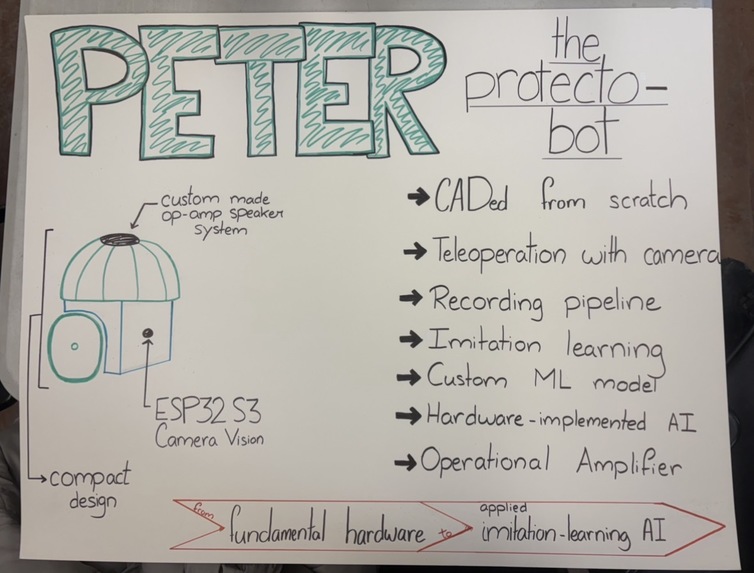 PETER
the
protecto-
bot
custom made
op-amp speaker
system
ESP32 S3
Camera Vision
compact
design
➔ CADed from scratch
➔ Teleoperation with camera
➔ Recording pipeline
➔ Imitation learning
➔ Custom ML model
➔ Hardware-implemented AI
➔ Operational Amplifier
from fundamental hardware to applied imitation-learning AI